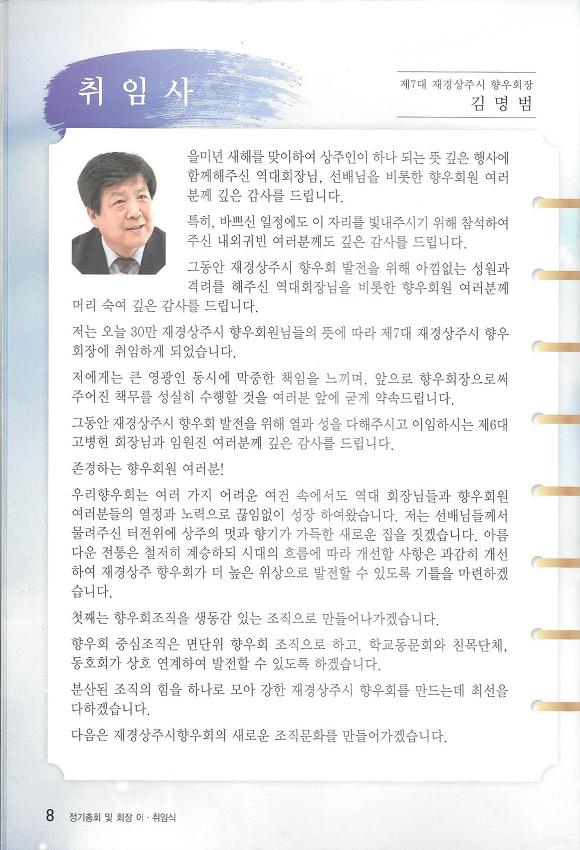 취임사
제7대 재경상주시 향우회장
김명범
을미년 새해를 맞이하여 상주인이 하나 되는 뜻 깊은 행사에
함께해주신 역대회장님, 선배님을 비롯한 향우회원 여러
분께 깊은 감사를 드립니다.
특히, 바쁘신 일정에도 이 자리를 빛내주시기 위해 참석하여
주신 내외귀빈 여러분께도 깊은 감사를 드립니다.
그동안 재경상주시 향우회 발전을 위해 아낌없는 성원과
격려를 해주신 역대회장님을 비롯한 향우회원 여러분께
머리 숙여 깊은 감사를 드립니다.
저는 오늘 30만 재경상주시 향우회원님들의 뜻에 따라 제7대 재경상주시 향우
회장에 취임하게 되었습니다.
저에게는 큰 영광인 동시에 막중한 책임을 느끼며, 앞으로 향우회장으로써
주어진 책무를 성실히 수행할 것을 여러분 앞에 굳게 약속드립니다.
그동안 재경상주시 향우회 발전을 위해 열과 성을 다해주시고 이임하시는 제6대
고병헌 회장님과 임원진 여러분께 깊은 감사를 드립니다.
존경하는 향우회원 여러분!
우리향우회는 여러 가지 어려운 여건 속에서도 역대 회장님들과 향우회원
여러분들의 열정과 노력으로 끊임없이 성장 하여왔습니다. 저는 선배님들께서
물려주신 터전위에 상주의 멋과 향기가 가득한 새로운 집을 짓겠습니다. 아름
다운 전통은 철저히 계승하되 시대의 흐름에 따라 개선할 사항은 과감히 개선
하여 재경상주 향우회가 더 높은 위상으로 발전할 수 있도록 기틀을 마련하겠
습니다.
첫째는 향우회조직을 생동감 있는 조직으로 만들어나가겠습니다.
향우회 중심조직은 면단위 향우회 조직으로 하고, 학교동문회와 친목단체,
동호회가 상호 연계하여 발전할 수 있도록 하겠습니다.
분산된 조직의 힘을 하나로 모아 강한 재경상주시 향우회를 만드는데 최선을
다하겠습니다.
다음은 재경상주시향우회의 새로운 조직문화를 만들어가겠습니다.
8 정기총회 및 회장 이·취임식